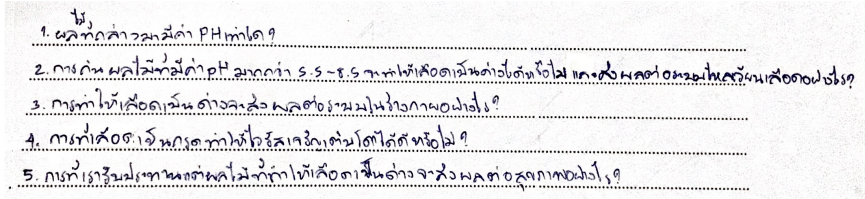 1. ผลไม้ที่กล่าวมามีค่า PH เท่าใด?
2. การกินผลไม้ที่มีค่า pH มากกว่า 5.5-8.5 จะทำให้เลือดเป็นด่างได้หรือไม่ และส่งผลต่อระบบไหลเวียนเลือดอย่างไร?
3. การทำให้เลือดเป็นด่างจะส่งผลต่อระบบในร่างกายอย่างไร?
4. การที่เลือดเป็นกรดทำให้ไวรัสเจริญเติบโตได้ดีหรือไม่?
5. การที่เรารับประทานแต่ผลไม้ที่ทำให้เลือดเป็นด่างจะส่งผลต่อสุขภาพอย่างไร?